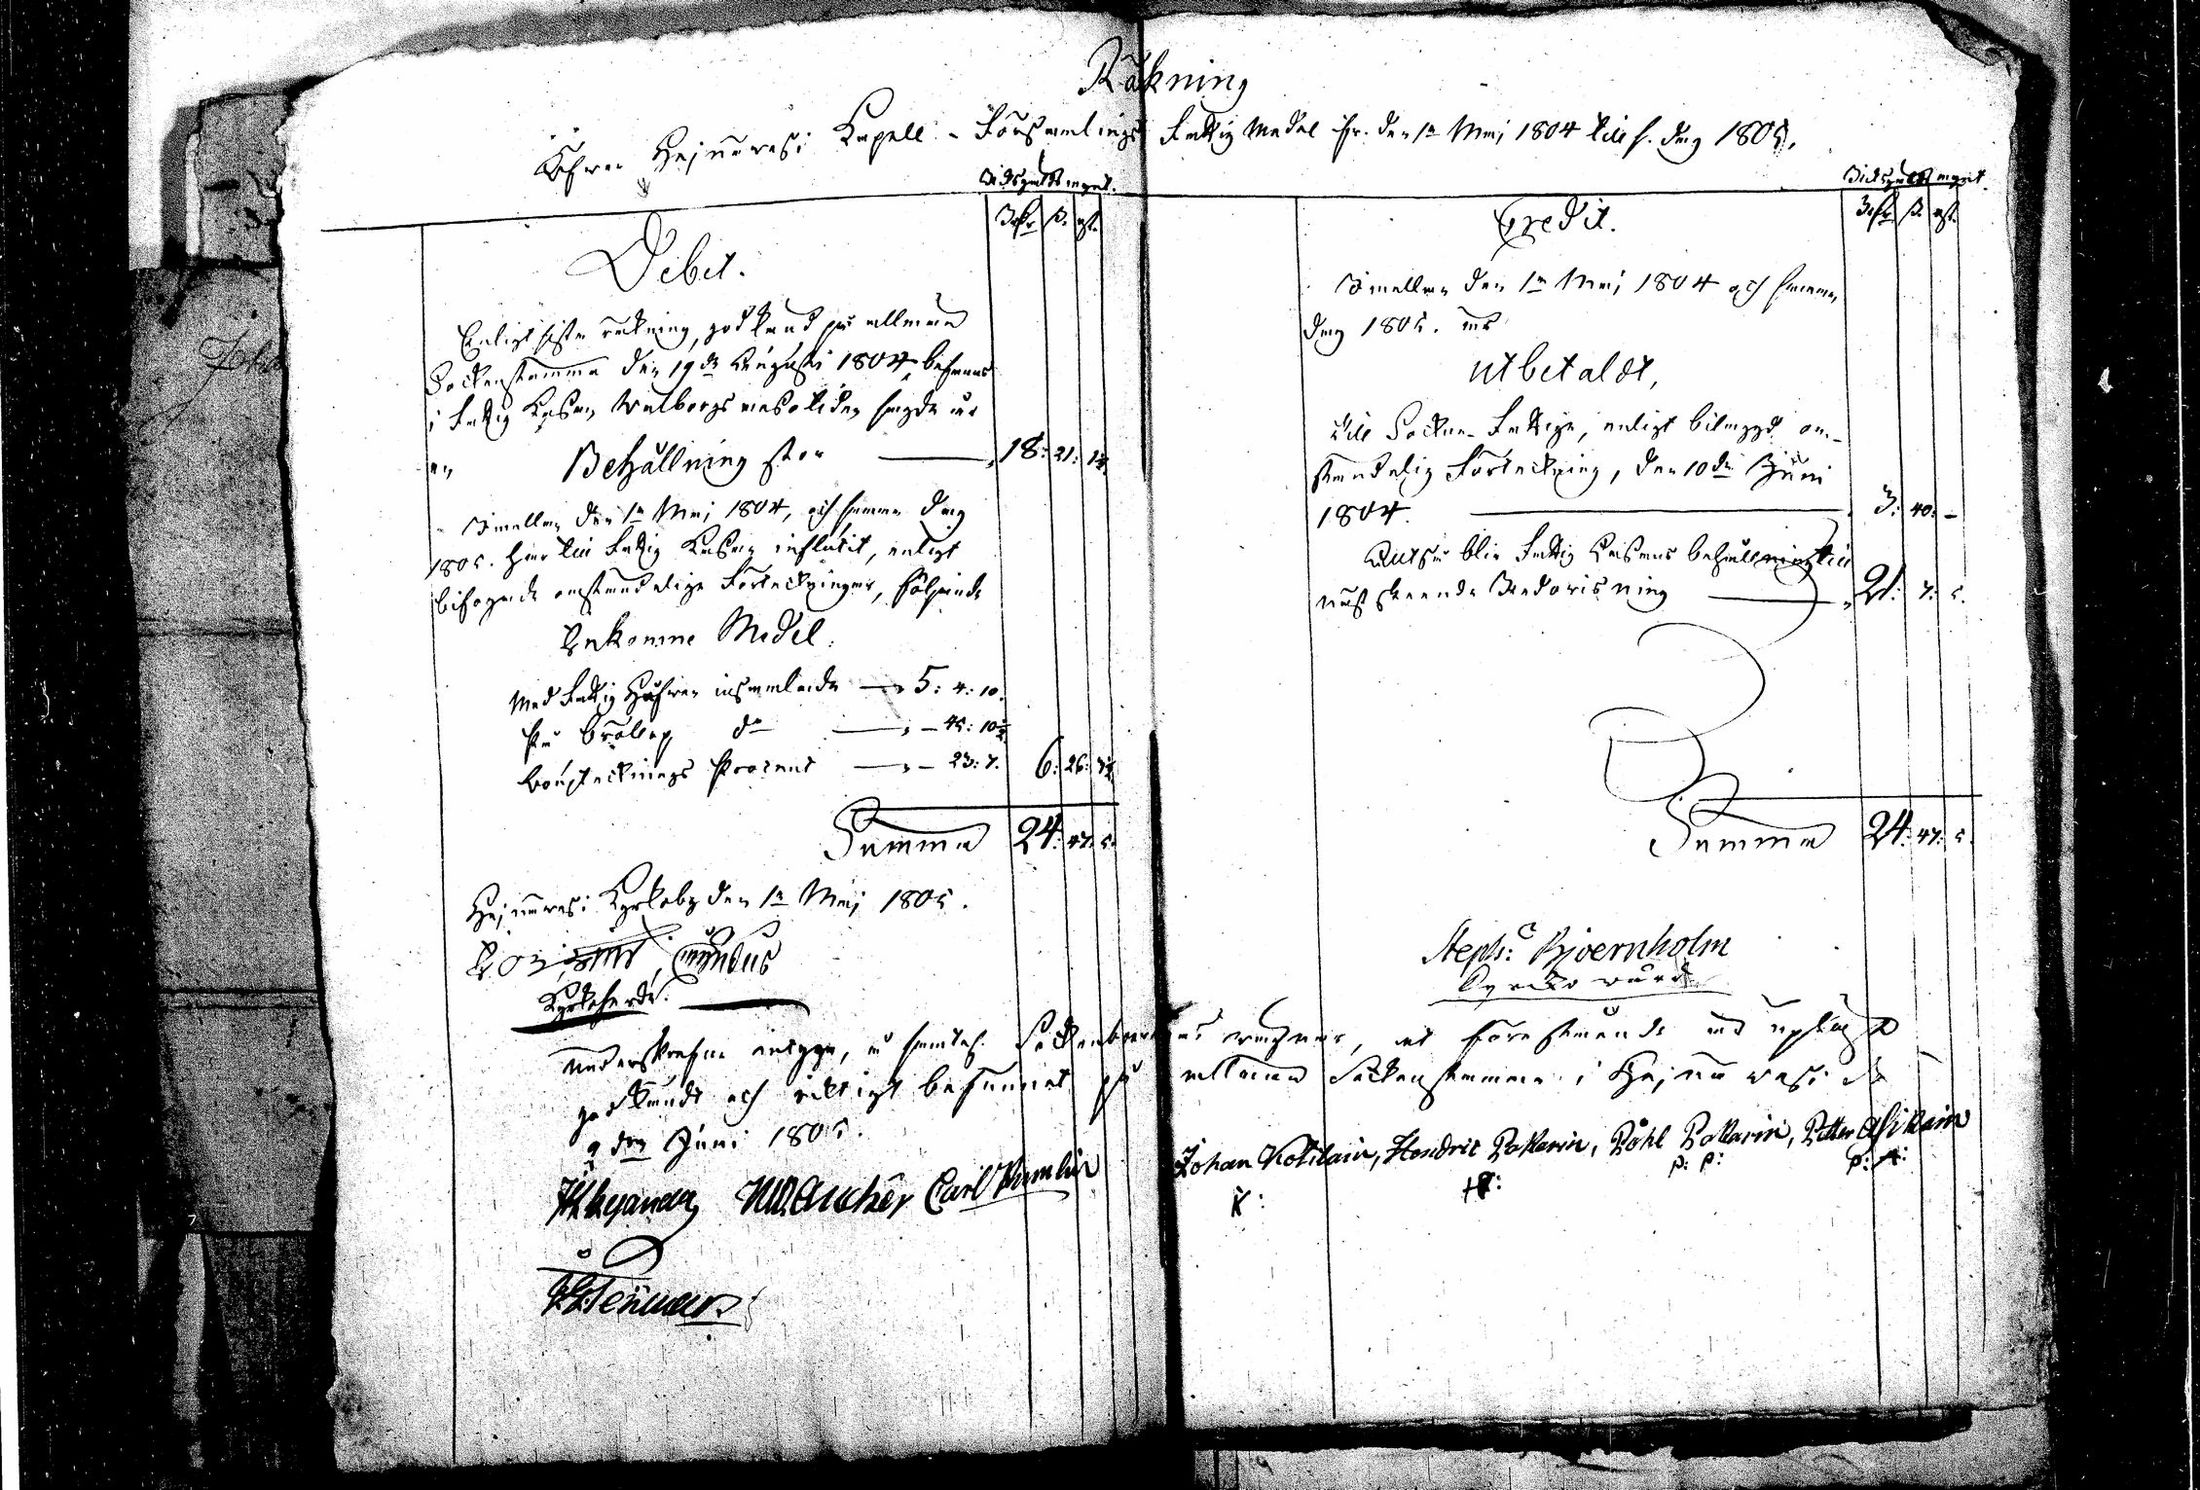 Räkning
Öfwer Hejnäwesi Capell-Församlings Fattig Medel fr. den 1a Maj 1804 till s. dag 1805.
Riksgäldsmynt.
Rdr ß. rst.
Debet.
Enligt sista räkning, godkänd på allmän
Sockenstämma den 19de Augusti 1804, befanns
i Fattig Kassan Walborgsmässotiden sagde år
en Behållning stor 18: 21:
Imellan den 1a Maj 1804, och samma dag
1805. har till Fattig Kassan influtit, enligt
bifogade omständelige Förteckningar, följande
Inkomne Medel.
Med Fattig Håfwen insamlade 5: 4: 10.
På bröllop do 45: 10½
Bouptecknings Procent 23: 7. 6: 26:
Summa 24: 47: 5.
Hejnäwesi Kyrkoby den 1a Maj 1805.
Cumenius
Kyrkoherde.
Riksgälds mynt.
Rdr ß. rst.
Credit.
Imellan den 1a Maj 1804 och samma
dag 1805. är
utbetaldt,
Till Socknens Fattige, enligt bilaggd om-
ständelig Förteckning, den 10de Juni
1804. 3: 40: -
Altså blir Fattig Cassans behållning till
näst skeende Redovisning 21: 7: 5.
Summa 24: 47: 5.
Steph: Bjoernholm
Kyrko wärd
underskrefne intyga, å samtel. Sockenboernes wägnar, at förestående är uplagt
godkändt och riktigt befunnet på allmän Sockenstämma i Hejnäwesi d.
9 den Juni 1805.
Carl Kumlin
Johan Kotilain, Hendric Pakarin, Påhl Pakarin, Petter Asikain
P: P: